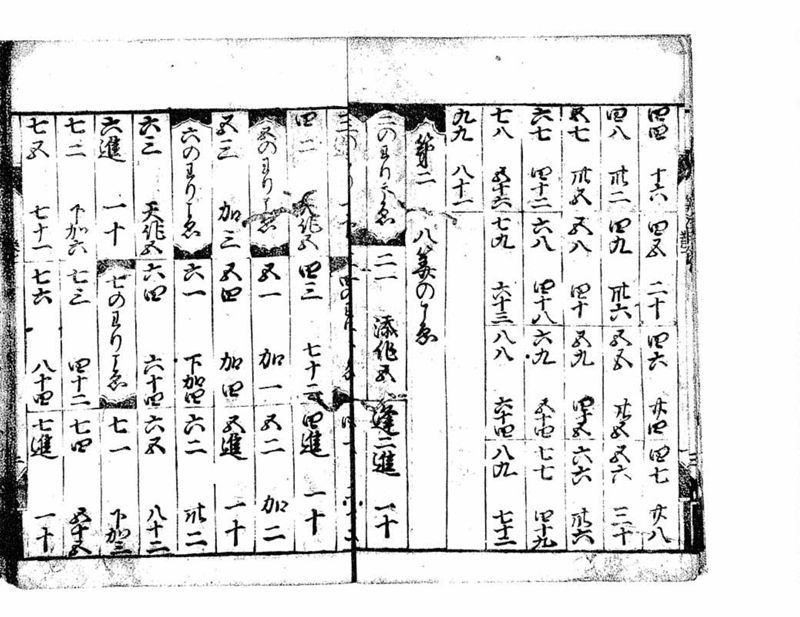 四四 十六 四五 二十 四六 廿四 四七 廿八
四八 卅二 四九 卅六 五五 廿五 五六 三十
五七 卅五 五八 四十 五九 四十五 六六 卅六
六七 四十二 六八 四十八 六九 五十四 七七 四十九
七八 五十六 七九 六十三 八八 六十四 八九 七十二
九九 八十一
第二 八算のこゑ
二のわりこゑ 二一 添作五 逢二進 一十
四二 天作五 四三 七十二 四進 一十
五のわりこゑ 五一 加一 五二 加二
五三 加三 五四 加四 五進 一十
六のわりこゑ 六一 下加四 六二 卅二
六三 天作五 六四 六十四 六五 八十二
六進 一十 七のわりこゑ 七一 下加三
七二 下加六 七三 四十二 七四 五十五
七五 七十一 七六 八十四 七進 一十